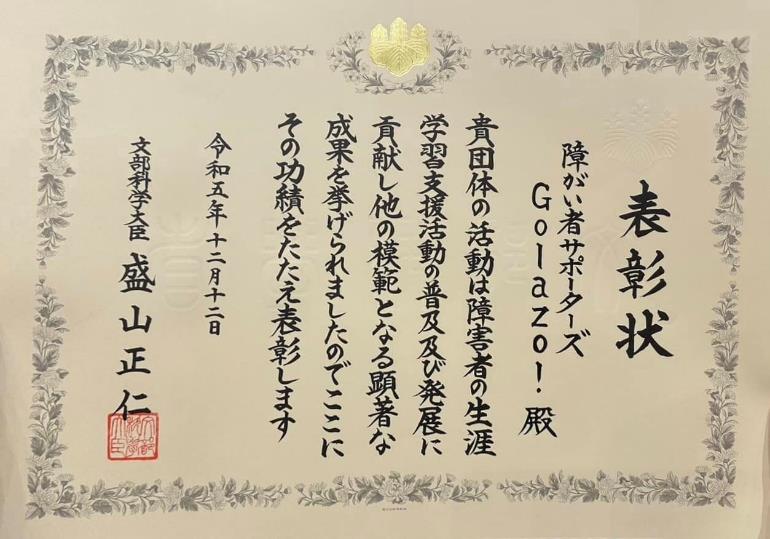 表彰状
障がい者サポーターズ
Golazo!殿
貴団体の活動は障害者の生涯
学習支援活動の普及及び発展に
貢献し他の模範となる顕著な
成果を挙げられましたのでここに
その功績をたたえ表彰します
令和五年十二月十二日
文部科学大臣 盛山正仁